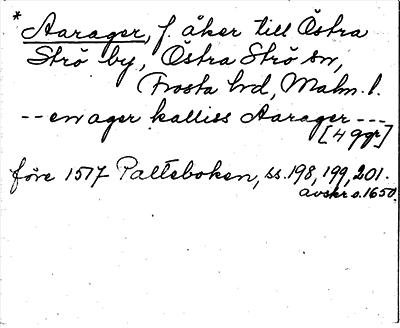 * Aarager, f. åker till Östra
Strö by, Östra Strö sn,
Frosta hd, Malm. l.
-- en ager kalliss Aarager ---
[4 ggr]
före 1517 Palteboken, ss. 198, 199, 201.
avskr. o. 1650.